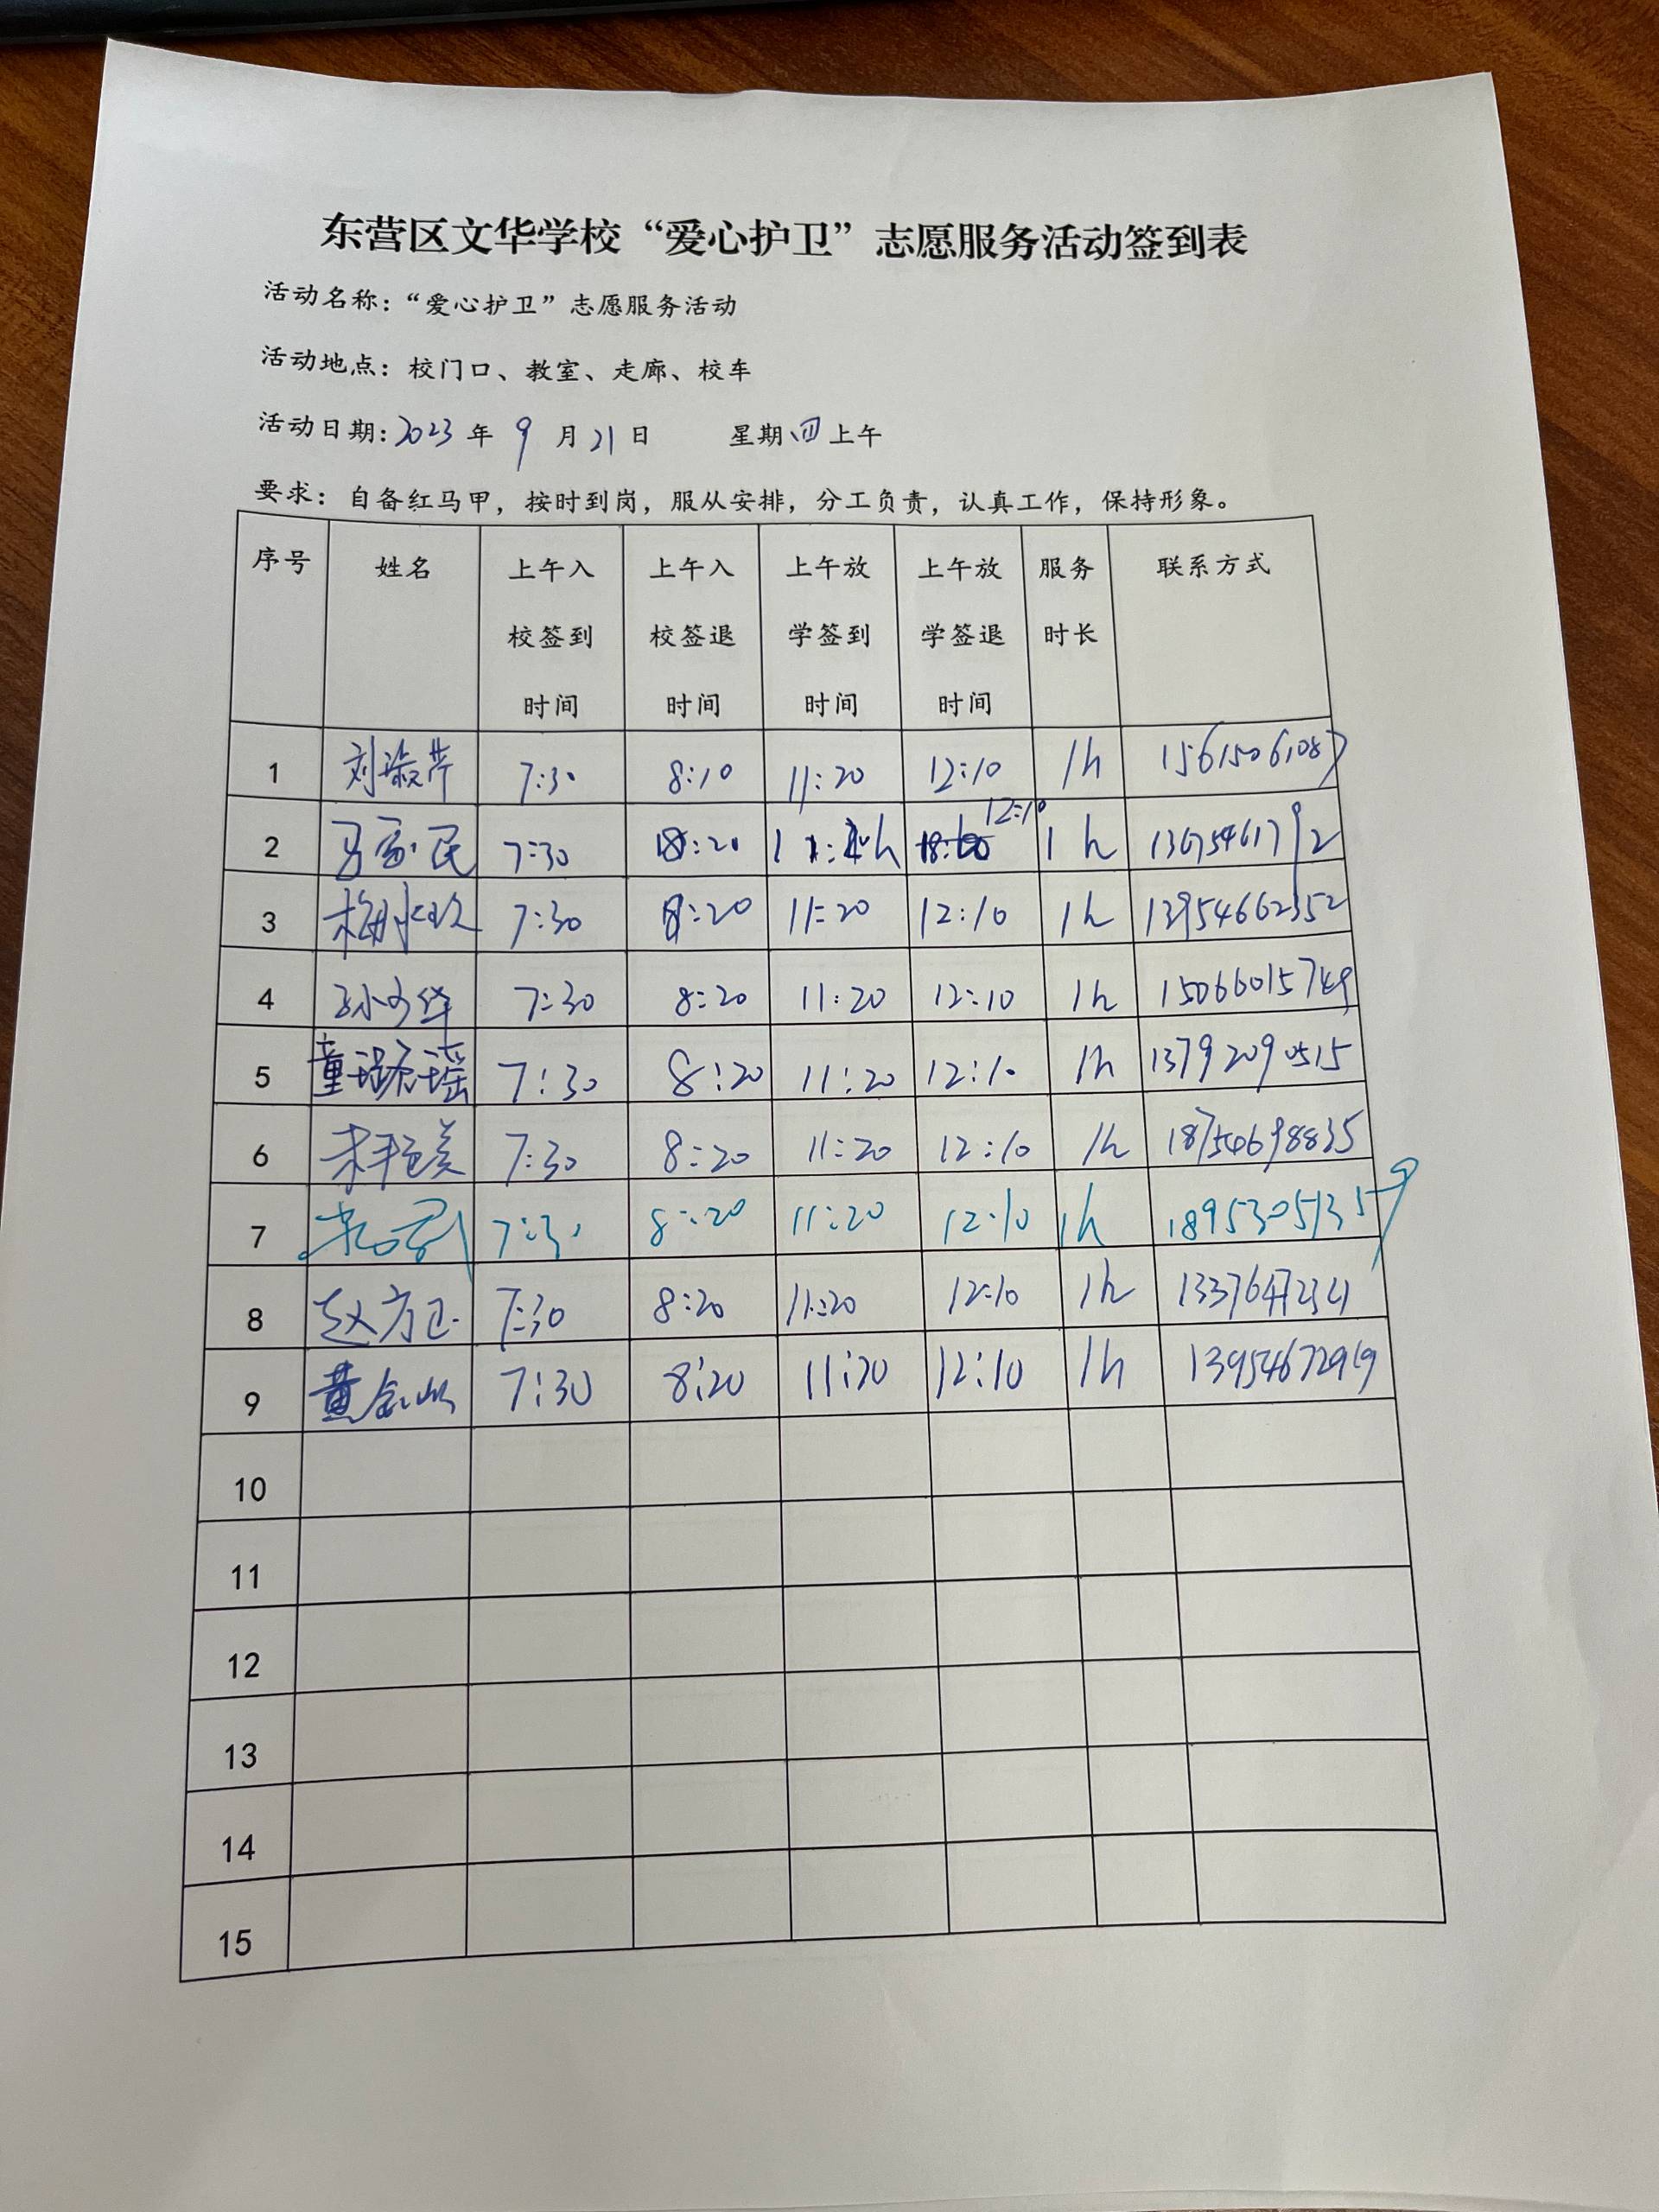 东营区文华学校“爱心护卫”志愿服务活动签到表
活动名称：“爱心护卫”志愿服务活动
活动地点：校门口、教室、走廊、校车
活动日期：2023 年 9 月 21 日 星期四上午
要求：自备红马甲，按时到岗，服从安排，分工负责，认真工作，保持形象。
序号 姓名 上午入校签到时间 上午入校签退时间 上午放学签到时间 上午放学签退时间 服务时长 联系方式
1 刘淑芹 7:30 8:10 11:20 12:10 1h 15615061087
2 7:30 8:20 12:10 1h 13675461792
3 7:30 8:20 11:20 12:10 1h 13954662352
4 7:30 8:20 11:20 12:10 1h 15066015749
5 7:30 8:20 11:20 12:10 1h 13792090515
6 7:30 8:20 11:20 12:10 1h 18754698835
7 7:30 8:20 11:20 12:10 1h 18953051359
8 赵方卫 7:30 8:20 11:20 12:10 1h
9 黄金山 7:30 8:20 11:20 12:10 1h
10
11
12
13
14
15